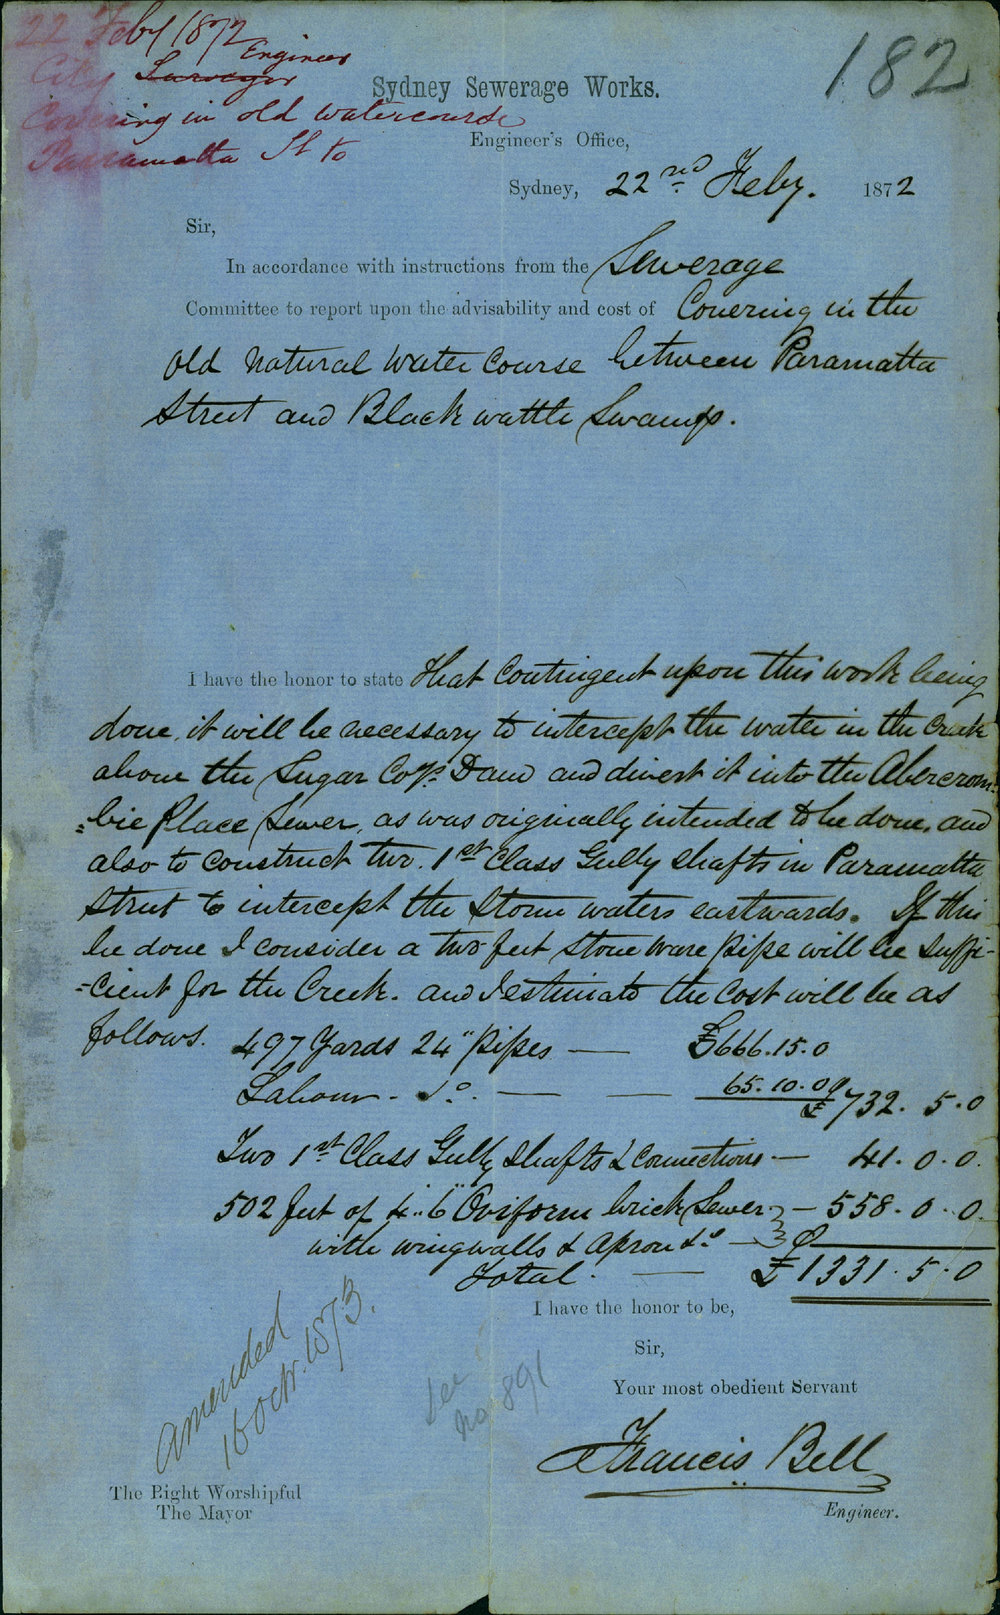 22 Feby 1872
Engineer
City Surveyor
Covering in old watercourse
Parramatta St to
182
Sydney Sewerage Works.
Engineer's Office,
Sydney, 22nd Feby. 1872
Sir,
In accordance with instructions from the Sewerage
Committee to report upon the advisability and cost of Covering in the
old natural water Course between Paramatta
Street and Blackwattle Swamp.
I have the honor to state That Contingent upon this work being
done, it will be necessary to intercept the water in the Creek
above the Sugar Coy's Dam and divert it into the Abercrom=
=bie Place Sewer, as was originally intended to be done, and
also to construct two. 1st Class Gully shafts in Paramatta
Street to intercept the Storm waters eastwards. If this
be done I consider a two feet Stone ware pipe will be suffi-
=cient for the Creek. and I estimate the Cost will be as
follows. 497 Yards 24" Pipes — £666.15.0
Labour - Do. — — 65.10.0
£732. 5.0
Two 1st Class Gully Shafts & Connections — 41.0.0.
502 feet of 4..6" Oviform brick Sewer — 558.0.0
with wingwalls & Apron &c —
Total. — £1331.5.0
I have the honor to be,
Sir,
Your most obedient Servant
Francis Bell
Engineer.
Amended
16 Octr. 1873.
See
No 891
The Right Worshipful
The Mayor